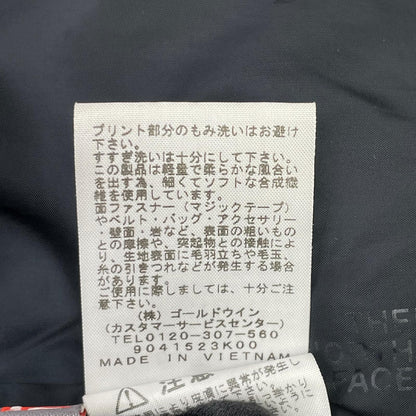 プリント部分のもみ洗いはお避け
下さい。
すすぎ洗いは十分にして下さい。
この製品は軽量で柔らかな風合い
を出す為、細くてソフトな合成繊
維を使用しています。
面ファスナー(マジックテープ)
やベルト・バッグ・アクセサリー
・壁面・岩など、表面の粗いもの
との摩擦や、突起物との接触によ
り、生地表面に毛羽立ちや毛玉、
糸の引きつれなどが発生する場合
があります。
ご使用に際しましては、十分ご注
意下さい。
(株)ゴールドウイン
(カスタマーサービスセンター)
TEL0120-307-560
9041523K00
MADE IN VIETNAM
注意
HE
NORTH
FACE